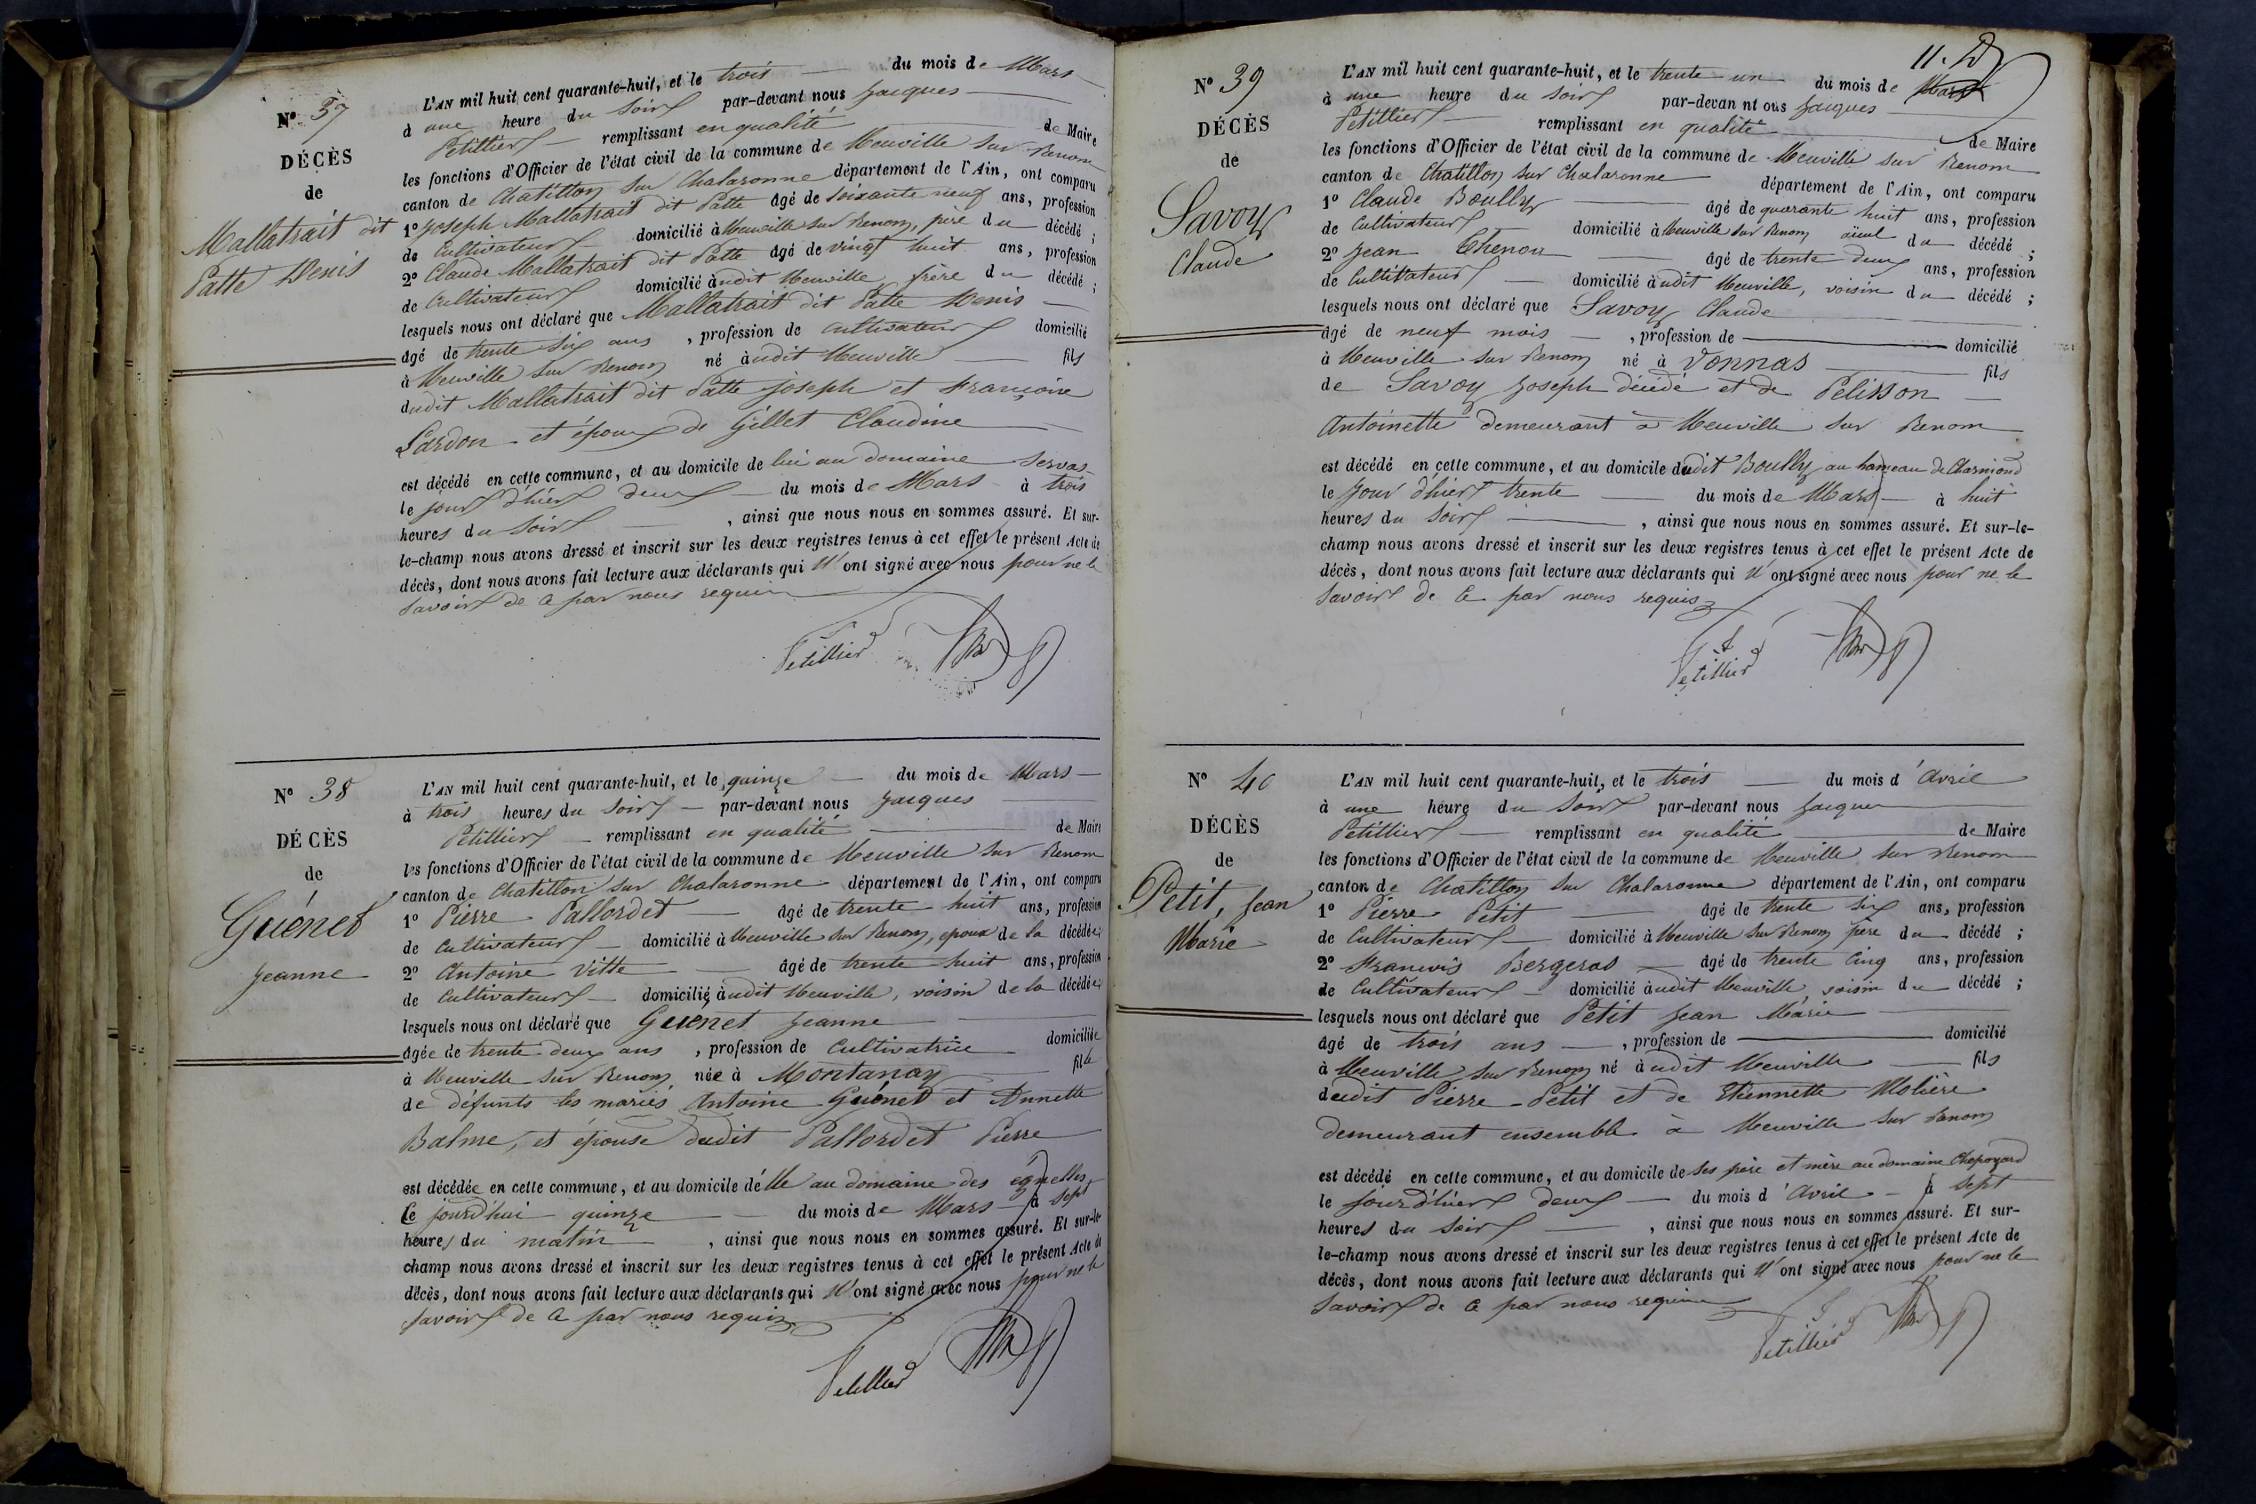 N° 37
DÉCÈS
de
Mallatrait dit
Patte Denis
L'AN mil huit cent quarante-huit, et le trois du mois de Mars
à une heure du soir par-devant nous Jacques
Petillier remplissant en qualité de Maire
les fonctions d'Officier de l'état civil de la commune de Neuville sur Renom
canton de Chatillon sur Chalaronne département de l'Ain, ont comparu
1° Joseph Mallatrait dit Patte âgé de soixante neuf ans, profession
de Cultivateur domicilié à Neuville sur Renom, père du décédé ;
2° Claude Mallatrait dit Patte âgé de vingt huit ans, profession
de Cultivateur domicilié audit Neuville frère du décédé ;
lesquels nous ont déclaré que Mallatrait dit Patte Denis
âgé de trente six ans , profession de cultivateur domicilié
à Neuville sur Renom né audit Neuville fils
dudit Mallatrait dit Patte Joseph et Françoise
Lardon et époux de Gillet Claudine
est décédé en cette commune, et au domicile de lui au domaine Servas
le jour d'hier deux du mois de Mars à trois
heures du soir , ainsi que nous nous en sommes assuré. Et sur-
le-champ nous avons dressé et inscrit sur les deux registres tenus à cet effet le présent Acte de
décès, dont nous avons fait lecture aux déclarants qui n'ont signé avec nous pour ne le
savoir de ce par nous requis
Petillier
N° 38
DÉCÈS
de
Guénet
Jeanne
L'AN mil huit cent quarante-huit, et le quinze du mois de Mars
à trois heures du soir par-devant nous Jacques
Petillier remplissant en qualité de Maire
les fonctions d'Officier de l'état civil de la commune de Neuville sur Renom
canton de Chatillon sur Chalaronne département de l'Ain, ont comparu
1° Pierre Pallordet âgé de trente huit ans, profession
de cultivateur domicilié à Neuville sur Renom, époux de la décédée ;
2° Antoine Vitte âgé de trente huit ans, profession
de cultivateur domicilié audit Neuville, voisin de la décédée ;
lesquels nous ont déclaré que Guénet Jeanne
âgée de trente deux ans , profession de cultivatrice domiciliée
à Neuville sur Renom née à Montanay fille
de défunts les mariés Antoine Guénet et Annette
Balme, et épouse dudit Pallordet Pierre
est décédée en cette commune, et au domicile d'elle au domaine des égnelles
Ce jourd'hui quinze du mois de Mars à sept
heures du matin , ainsi que nous nous en sommes assuré. Et sur-le-
champ nous avons dressé et inscrit sur les deux registres tenus à cet effet le présent Acte de
décès, dont nous avons fait lecture aux déclarants qui n'ont signé avec nous pour ne le
savoir de ce par nous requis
Petillier
11.
N° 39
DÉCÈS
de
Savoy
Claude
L'AN mil huit cent quarante-huit, et le trente un du mois de Mars
à une heure du soir par-devan nt ous Jacques
Petillier remplissant en qualité de Maire
les fonctions d'Officier de l'état civil de la commune de Neuville sur Renom
canton de Chatillon sur Chalaronne département de l'Ain, ont comparu
1° Claude Boully âgé de quarante huit ans, profession
de Cultivateur domicilié à Neuville sur Renom aïeul du décédé ;
2° Jean Chenou âgé de trente deux ans, profession
de Cultivateur domicilié audit Neuville, voisin du décédé ;
lesquels nous ont déclaré que Savoy Claude
âgé de neuf mois , profession de domicilié
à Neuville sur Renom né à Vonnas fils
de Savoy Joseph décédé et de Pelisson
Antoinette demeurant à Neuville sur Renom
est décédé en cette commune, et au domicile dudit Boully au hameau de Charmond
le jour d'hier trente du mois de Mars à huit
heures du soir , ainsi que nous nous en sommes assuré. Et sur-le-
champ nous avons dressé et inscrit sur les deux registres tenus à cet effet le présent Acte de
décès, dont nous avons fait lecture aux déclarants qui n'ont signé avec nous pour ne le
savoir de ce par nous requis
Petillier
N° 40
DÉCÈS
de
Petit, Jean
Marie
L'AN mil huit cent quarante-huit, et le trois du mois d'Avril
à une heure du soir par-devant nous Jacques
Petillier remplissant en qualité de Maire
les fonctions d'Officier de l'état civil de la commune de Neuville sur Renom
canton de Chatillon sur Chalaronne département de l'Ain, ont comparu
1° Pierre Petit âgé de trente six ans, profession
de Cultivateur domicilié à Neuville sur Renom père du décédé ;
2° François Bergeras âgé de trente cinq ans, profession
de Cultivateur domicilié audit Neuville, voisin du décédé ;
lesquels nous ont déclaré que Petit Jean Marie
âgé de trois ans , profession de domicilié
à Neuville sur Renom né audit Neuville fils
dudit Pierre Petit et de Etiennette Molière
demeurant ensemble à Neuville sur Renom
est décédé en cette commune, et au domicile de ses père et mère au domaine Chapoyard
le jour d'hier deux du mois d'Avril à sept
heures du soir , ainsi que nous nous en sommes assuré. Et sur-
le-champ nous avons dressé et inscrit sur les deux registres tenus à cet effet le présent Acte de
décès, dont nous avons fait lecture aux déclarants qui n'ont signé avec nous pour ne le
savoir de ce par nous requis
Petillier